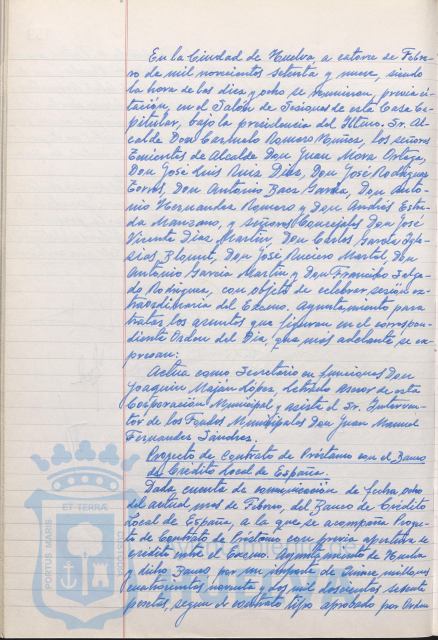 En la Ciudad de Huelva, a catorce de Febre-
ro de mil novecientos setenta y nueve, siendo
la hora de las diez y ocho se reunieron, previa ci-
tación, en el Salón de Sesiones de esta Casa Ca-
pitular, bajo la presidencia del Iltmo. Sr. Al-
calde Don Carmelo Romero Núñez, los señores
Tenientes de Alcalde Don Juan Mora Ortega,
Don José Luis Ruiz Díaz, Don José Rodríguez
Torres, Don Antonio Baez García, Don Anto-
nio Hernandez Romero y Don Andrés Estra-
da Manzano, y señores Concejales Don José
Vicente Díaz Martín, Don Carlos García Igle-
sias Don José Martel, Don
Antonio García Martín y Don Francisco
do Rodríguez, con objeto de celebrar sesión ex-
traordinaria del Excmo. Ayuntamiento para
tratar los asuntos que figuran en el correspon-
diente Orden del Día, que más adelante se ex-
presan:
Actua como Secretario en funciones Don
Joaquín López, letrado Asesor de esta
Corporación Municipal y asiste el Sr. Interven-
tor de los Fondos Municipales Don Juan Manuel
Fernandez Sández.
Proyecto de Contrato de Préstamo con el Banco
de Crédito Local de España.
Dada cuenta de comunicación de fecha ocho
del actual mes de Febrero, del Banco de Crédito
Local de España, a la que se acompaña Proyec-
to de Contrato de Préstamo con previa apertura de
crédito entre el Excmo. Ayuntamiento de Huelva
y dicho Banco por un importe de quince millones
cuatrocientas noventa y dos mil doscientas setenta
pesetas, según el contrato tipo aprobado por Orden
ET TERRA
PORTUS MARIS
CUSTODIA